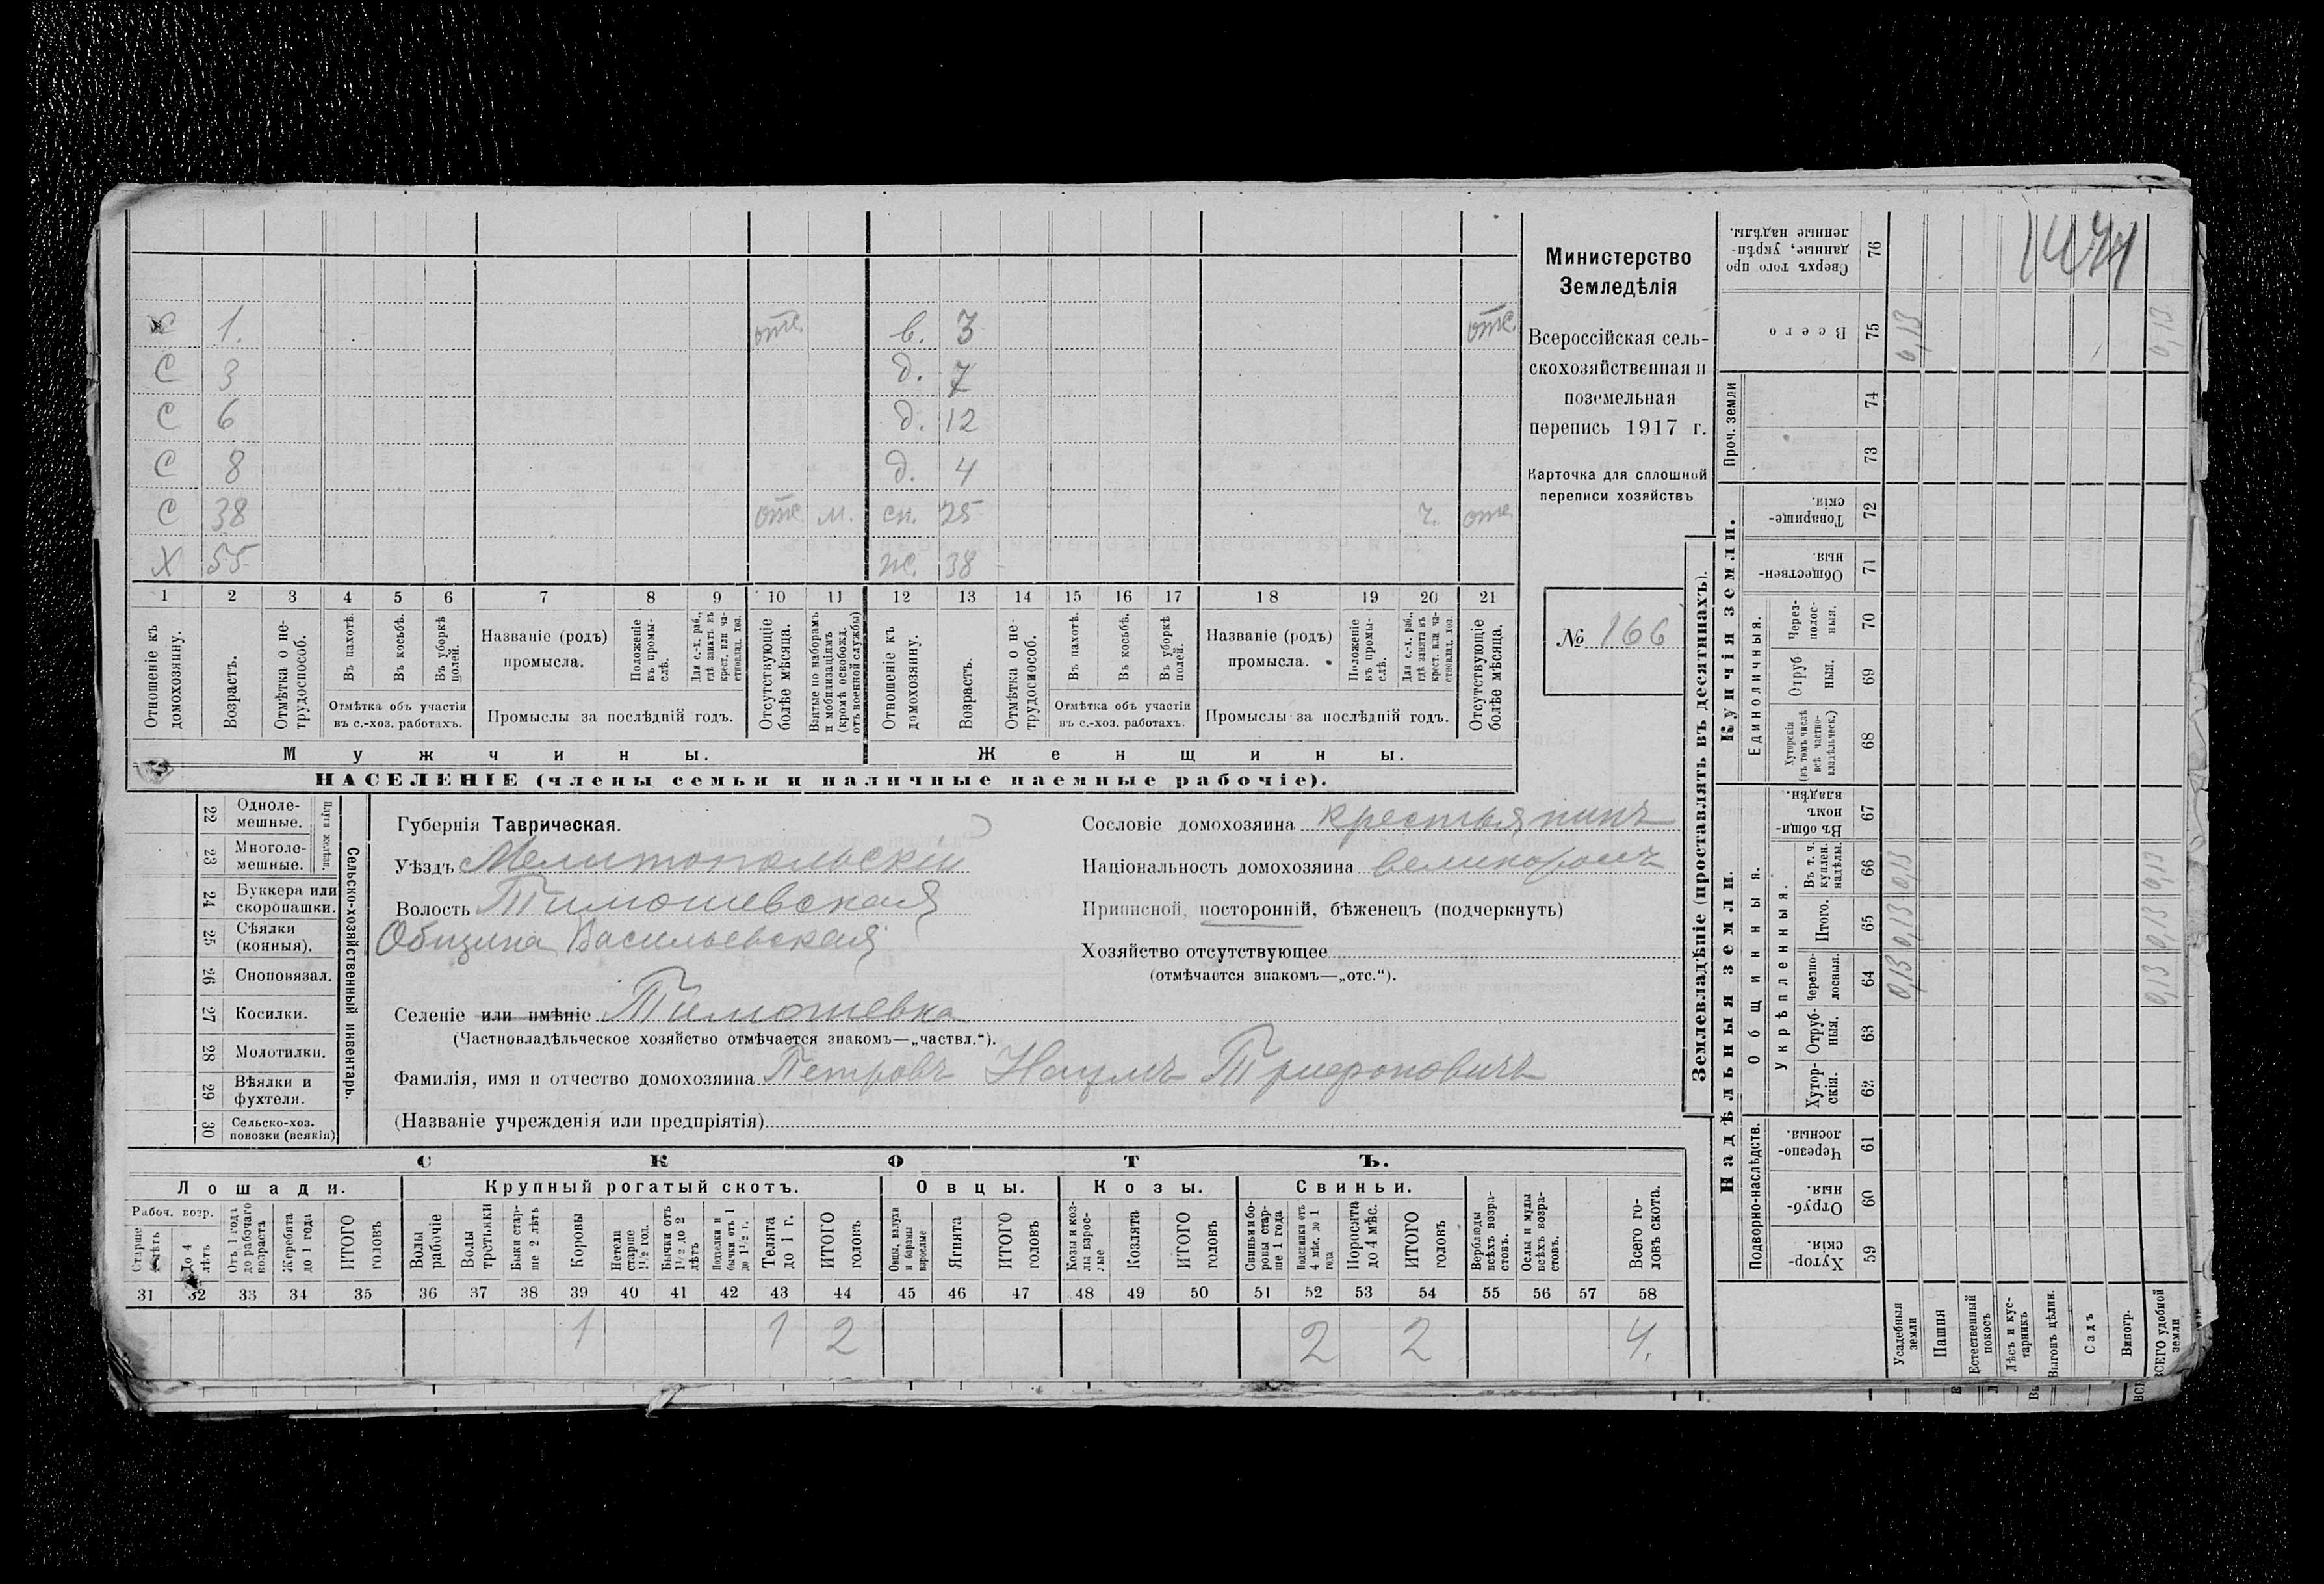 Министерство
Земледѣлія
Всероссійская сель-
скохозяйственная и
поземельная
перепись 1917 г.
Карточка для сплошной
переписи хозяйствъ
№ 166
1 2 3 4 5 6 7 8 9 10 11 12 13 14 15 16 17 18 19 20 21
С 1. отс. в. 3 отс.
С 3 д. 7
С 6 д. 12
С 8 д. 4
С 38 отс. м. сн. 25 г. отс.
Х 55 ж. 38
Отношеніе къ домохозяину.
Возрастъ.
Отмѣтка о не-трудоспособ.
Въ пахотѣ.
Въ косьбѣ.
Въ уборкѣ полей.
Отмѣтка объ участіи
въ с.-хоз. работахъ.
Названіе (родъ)
промысла.
Положеніе въ промы-слѣ.
Для с.-х. раб., гдѣ занятъ въ крест. или ча-стновлад. хоз.
Промыслы за послѣдній годъ.
Отсутствующіе болѣе мѣсяца.
Взятые по наборамъ и мобилизаціямъ (кромѣ освобожд. отъ военной службы)
Отношеніе къ домохозяину.
Возрастъ.
Отмѣтка о не-трудоспособ.
Въ пахотѣ.
Въ косьбѣ.
Въ уборкѣ полей.
Отмѣтка объ участіи
въ с.-хоз. работахъ.
Названіе (родъ)
промысла.
Положеніе въ промы-слѣ.
Для с.-х. раб., гдѣ занята въ крест. или ча-стновлад. хоз.
Промыслы за послѣдній годъ.
Отсутствующіе болѣе мѣсяца.
Мужчины.
Женщины.
НАСЕЛЕНІЕ (члены семьи и наличные наемные рабочіе).
Сельско-хозяйственный инвентарь.
22 Одноле-мешные.
23 Многоле-мешные.
24 Буккера или скоропашки.
25 Сѣялки (конныя).
26 Сноповязал.
27 Косилки.
28 Молотилки.
29 Вѣялки и фухтеля.
30 Сельско-хоз. повозки (всякія)
Губернія Таврическая.
Уѣздъ Мелитопольскій
Волость Тимошевская
Община Васильевская
Селеніе или имѣніе Тимошевка
(Частновладѣльческое хозяйство отмѣчается знакомъ—„частвл.“).
Фамилія, имя и отчество домохозяина Петровъ Наумъ Трифоновичъ
(Названіе учрежденія или предпріятія)
Сословіе домохозяина крестьянинъ
Національность домохозяина великороссъ
Приписной, посторонній, бѣженецъ (подчеркнуть)
Хозяйство отсутствующее
(отмѣчается знакомъ—„отс.“).
СКОТЪ.
Лошади.
Крупный рогатый скотъ.
Овцы.
Козы.
Свиньи.
Рабоч. возр.
Старше 4 лѣтъ
До 4 лѣтъ
Отъ 1 года до рабочаго возраста
Жеребята до 1 года
ИТОГО головъ
Волы рабочіе
Волы третьяки
Быки стар-ше 2 лѣтъ
Коровы
Нетели старше 1½ год.
Бычки отъ 1½ до 2 лѣтъ
бычки отъ 1 до 1½ г.
Телята до 1 г.
ИТОГО головъ
Овцы, валухи и бараны взрослые
Ягнята
ИТОГО головъ
Козы и коз-лы взрос-лые
Козлята
ИТОГО головъ
Свиньи и бо-ровы стар-ше 1 года
Подсвинки отъ 4 мѣс. до 1 года
Поросята до 4 мѣс.
ИТОГО головъ
Верблюды всѣхъ возра-стовъ.
Ослы и мулы всѣхъ возра-стовъ.
Всего го-ловъ скота.
31 32 33 34 35 36 37 38 39 40 41 42 43 44 45 46 47 48 49 50 51 52 53 54 55 56 57 58
1 1 2 2 2 4.
Землевладѣніе (проставлять въ десятинахъ).
Надѣльныя земли.
Купчія земли.
Проч. земли
Подворно-наслѣдств.
Общинныя.
Укрѣпленныя.
Единоличныя.
Сверхъ того про данные, укрѣп-ленные надѣлы. 76
Всего 75 0,13 0,13
74
73
Товарище-скія. 72
Обществен-ныя. 71
Черезполос-ныя. 70
Отруб ныя. 69
Хуторскія (въ томъ числѣ всѣ частно-владѣльческ.) 68
Въ общин номъ владѣн. 67
Въ т. ч. куплен. надѣлы. 66 0,13 0,13
Итого. 65 0,13 0,13
Черезпо-лосныя. 64 0,13 0,13
Отруб-ныя. 63
Хутор-скія. 62
Черезпо-лосныя. 61
Отруб-ныя. 60
Хутор-скія. 59
Усадебныя земли
Пашня
Естественный покосъ
Лѣсъ и кус-тарникъ
Выгонъ цѣлин.
Садъ
Виногр.
ВСЕГО удобной земли